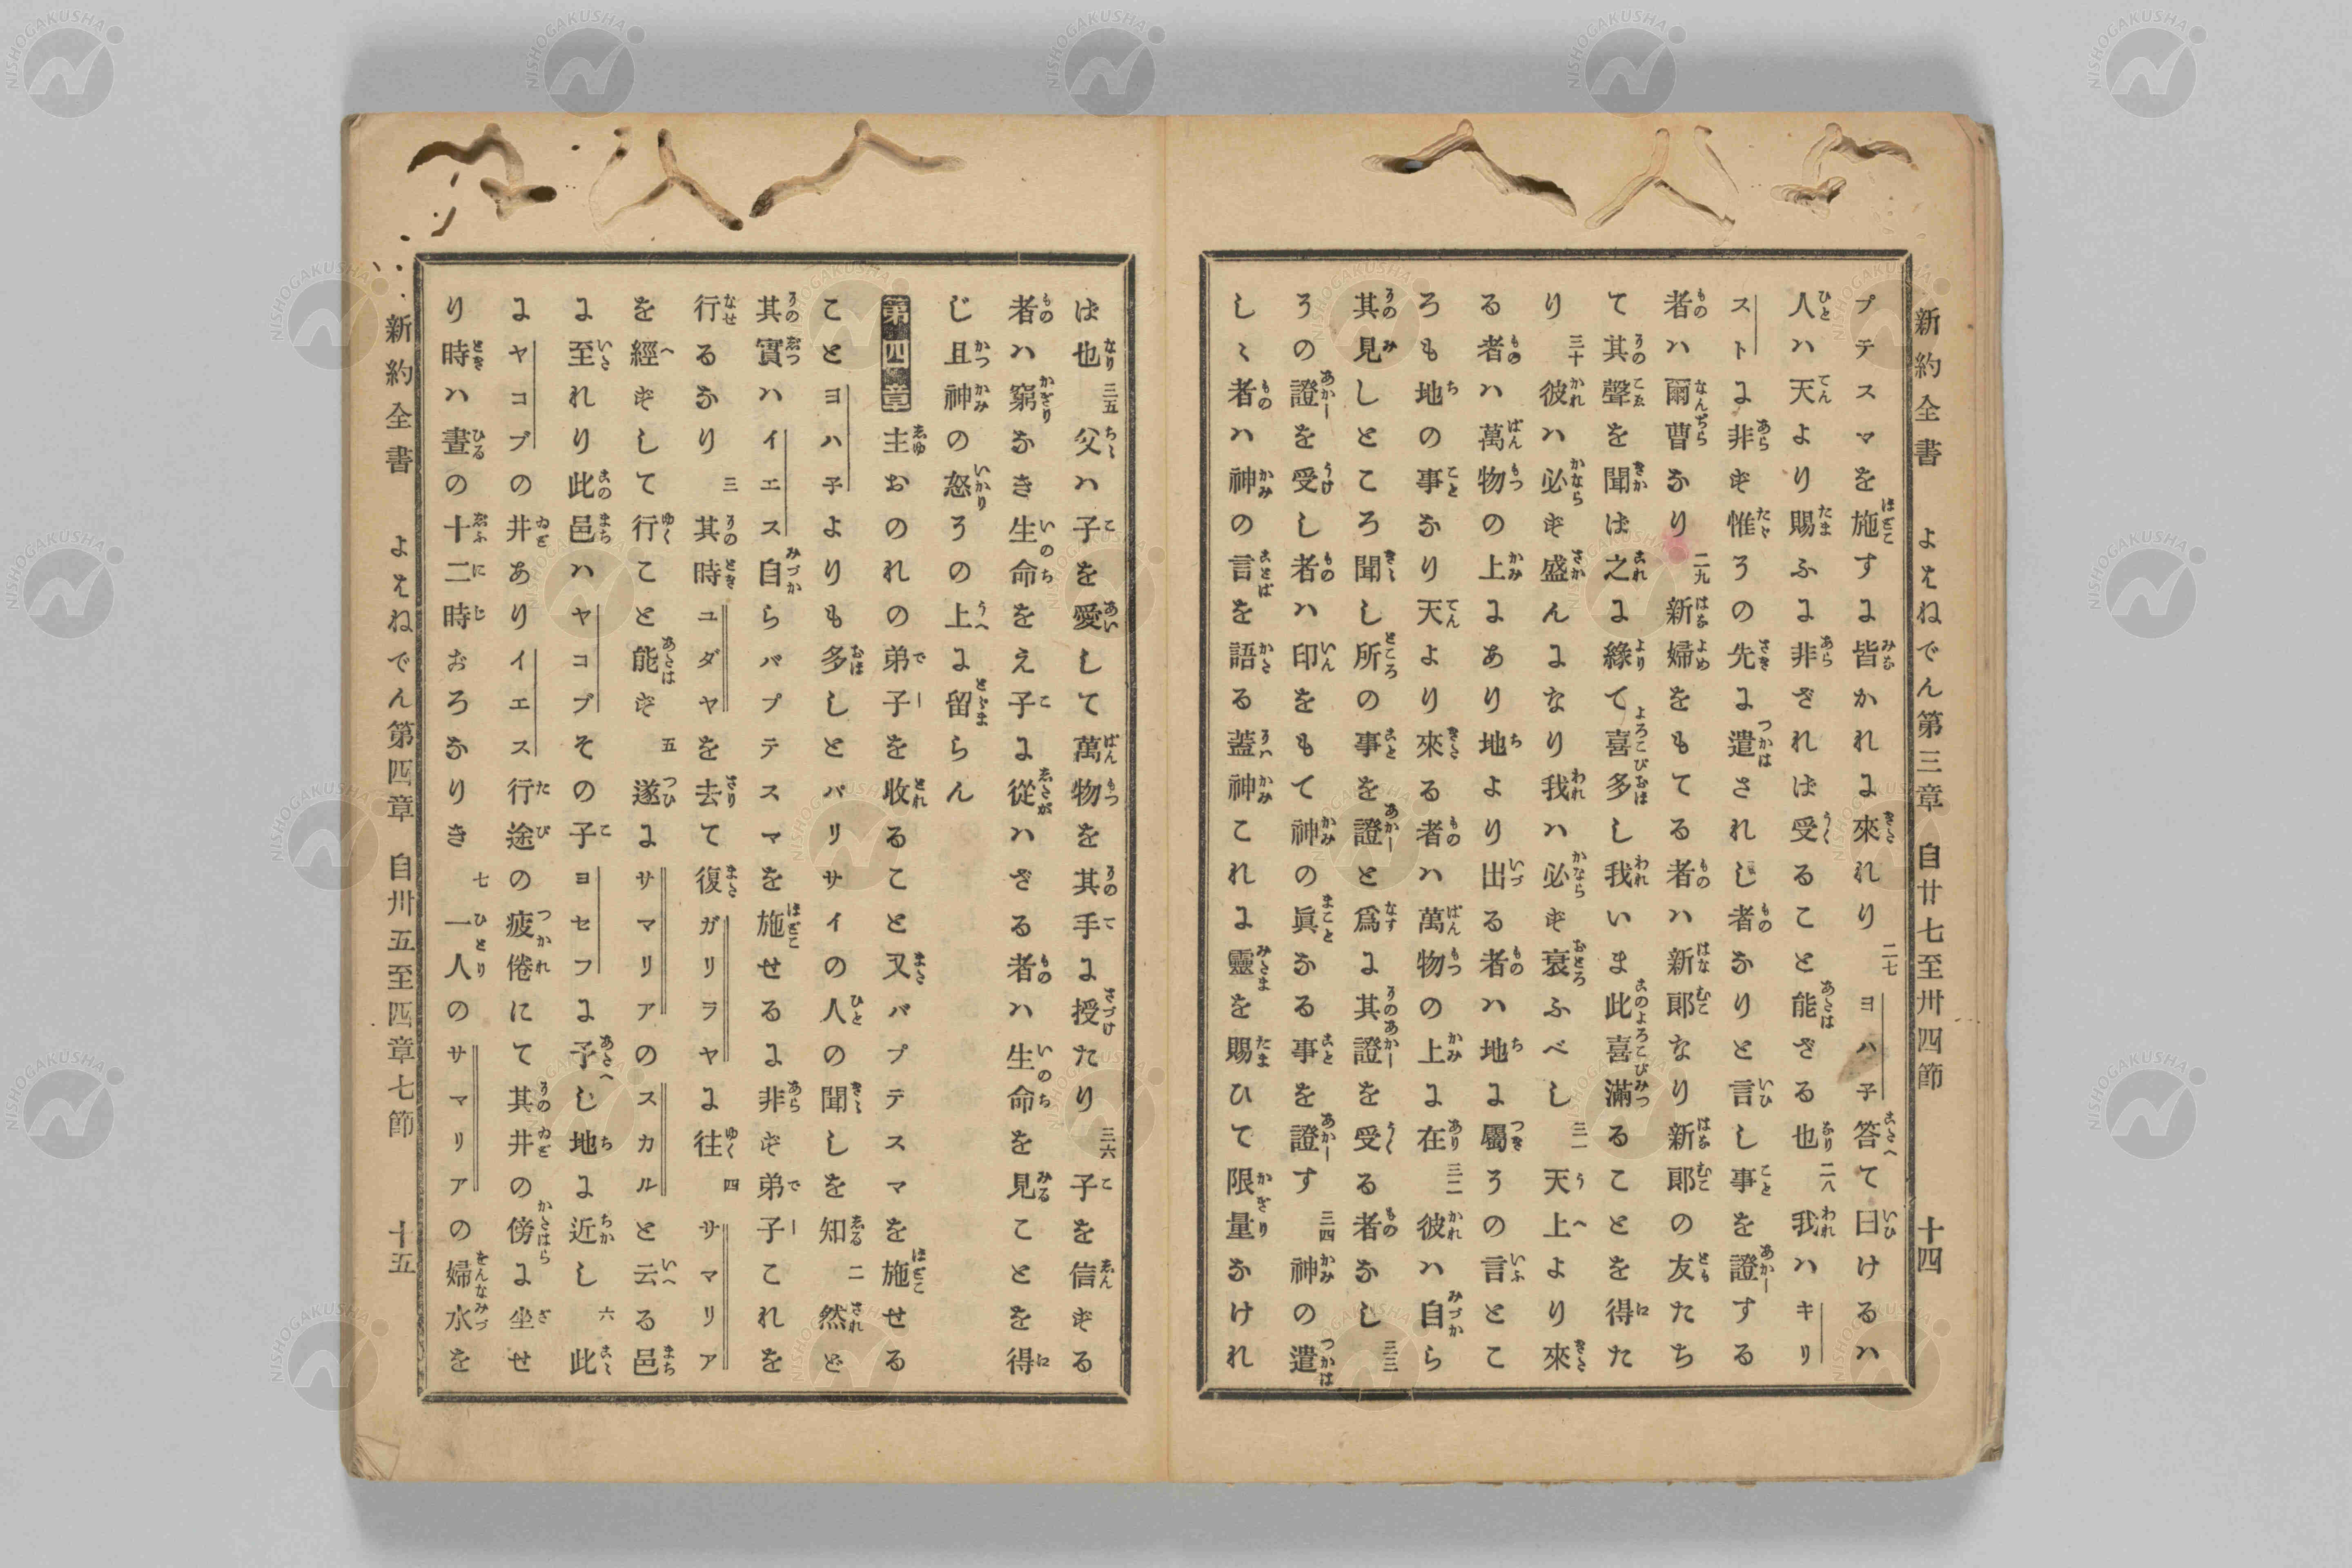 新約全書 よはねでん第三章 自廿七至卅四節 十四
プテスマを施すに皆かれに來れり 二七 ヨハ子答て曰けるハ
人ハ天より賜ふに非ざれば受ることと能ざる也 二八 我ハキリ
ストに非ず惟その先に遣されし者なりと言し事を證する
者ハ爾曹なり 二九 新婦をもてる者ハ新郎なり新郎の友たち
て其聲を聞ば之に緣て喜多し我いま此喜滿ることを得た
り 三十 彼ハ必ず盛んになり我ハ必ず衰ふべし 三一 天上より來
る者ハ萬物の上にあり地より出る者ハ地に屬その言とこ
ろも地の事なり天より來る者ハ萬物の上に在 三二 彼ハ自ら
其見しところ聞し所の事を證と爲に其證を受る者なし 三三
その證を受し者ハ印をもて神の眞なる事を證す 三四 神の遣
しゝ者ハ神の言を語る蓋神これに靈を賜ひて限量なけれ
ば也 三五 父ハ子を愛して萬物を其手に授たり 三六 子を信ずる
者ハ窮なき生命をえ子に從ハざる者ハ生命を見ことを得
じ且神の怒その上に留らん
第四章 主おのれの弟子を收ること又バプテスマを施せる
ことヨハ子よりも多しとパリサイの人の聞しを知 二 然ど
其實ハイエス自らバプテスマを施せるに非ず弟子これを
行るなり 三 其時ユダヤを去て復ガリラヤに往 四 サマリア
を經ずして行こと能ず 五 遂にサマリアのスカルと云る邑
に至れり此邑ハヤコブその子ヨセフに予し地に近し 六 此
にヤコブの井ありイエス行途の疲倦にて其井の傍に坐せ
り時ハ晝の十二時おろなりき 七 一人のサマリアの婦水を
新約全書 よはねでん第四章 自卅五至四章七節 十五
NISHOGAKUSHA